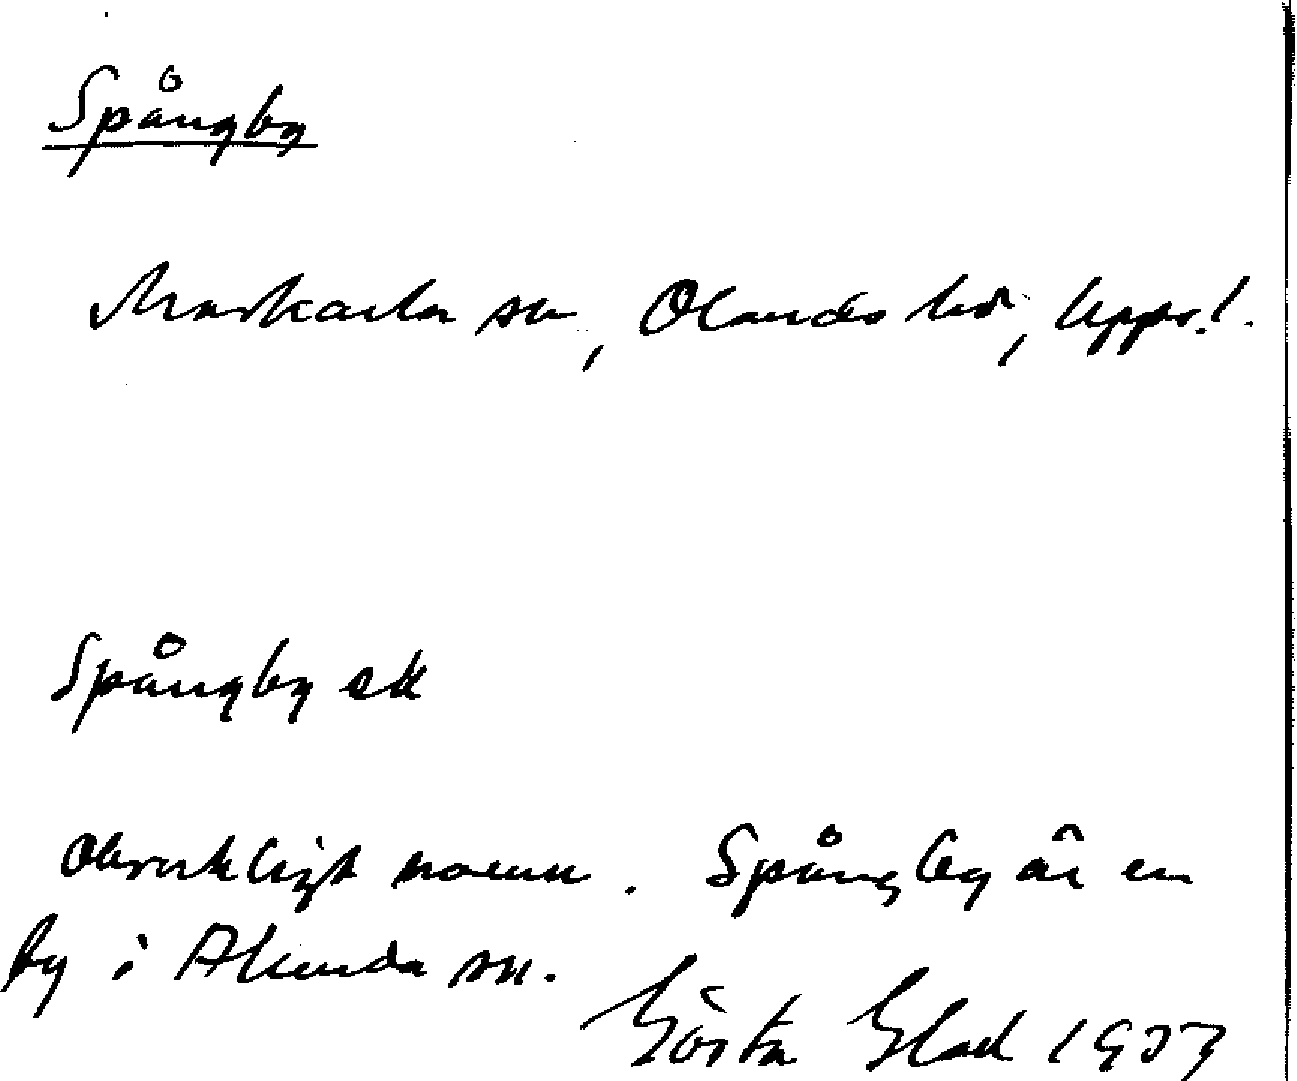 Spångby
Morkarla sn, Olands hd, Uppl.
Spångby ek
Oberäkligt namn. Spångby är en
by i Alunda sn.
Gösta Glad 1937